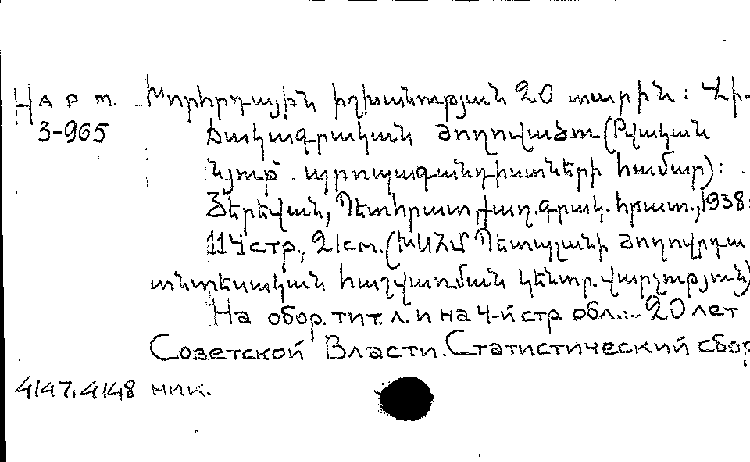 Нарт. Խորհրդային իշխանության 20 տարին: Վի-
3-965 ճակագրական ժողովածու (Թվական
նյութ. պրոպագանդիստների համար):
Յերեվան, Պետհրատ, քաղ. գրակ. հրատ., 1938:
114 стр., 21 см. (ԽՍՀՄ Պետպլանի ժողովրդա
տնտեսական հաշվառման կենտր. վարչություն)
На обор. тит. л. и на 4-й стр. обл.: 20 лет
Советской Власти. Статистический сбор
4147, 4148 ник.